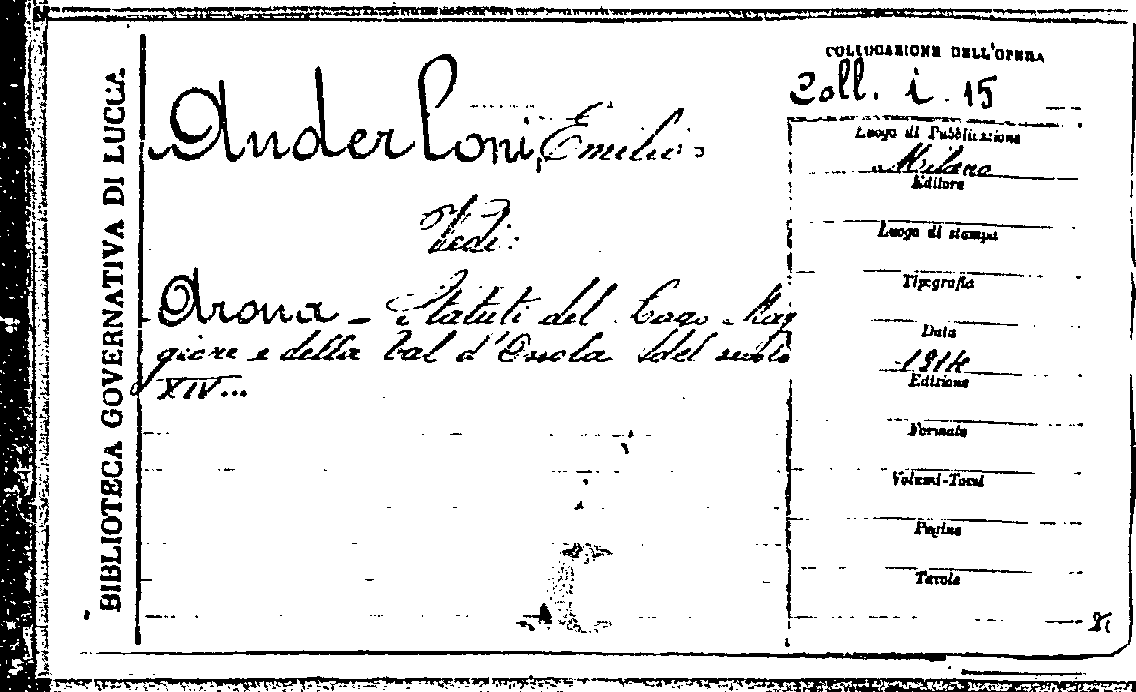 BIBLIOTECA GOVERNATIVA DI LUCCA
Anderloni, Emilio
Vedi:
Arona - Statuti del Lago Mag
giore e della Val d'Ossola del secolo
XIV...
COLLOCAZIONE DELL'OPERA
Coll. i. 15
Luogo di Pubblicazione
Milano
Editore
Luogo di stampa
Tipografia
Data
1914
Edizione
Formato
Volumi-Tomi
Pagine
Tavole